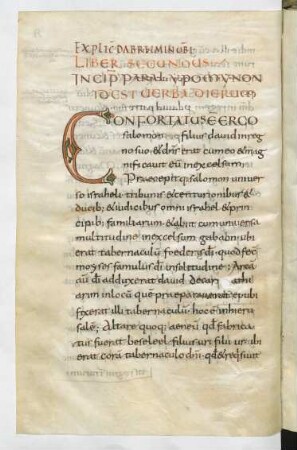 EXPLIC DABREIAMIN OBI
LIBER SECUNDUS
INCIP PARALYPOMENON
ID EST UERBA DIERUM
CONFORTATUS E ERGO
salomon filius dauid in reg
no suo & dns erat cum eo & mag
nificauit eu in excelsum
Praecepitq; salomon uniuer
so israheli tribunis & centurionibus &
ducib; & iudicibus omni israhel & prin
cipib; familiarum & abiit cum uniuersa
multitudine in excelsum gabaon ubi
erat tabernaculu foederis di quod fec
moyses famulus di in solitudine; Arca
di adduxerat dauid de
in locu que praeparauerat ei & ubi
fixerat illi tabernaculu hoc e in hieru
sale; Altare quoq; aeneu qd fabrica
tus fuerat beseleel filius uri filii ur ubi
erat cora tabernaculo dni; qd & requisiuit